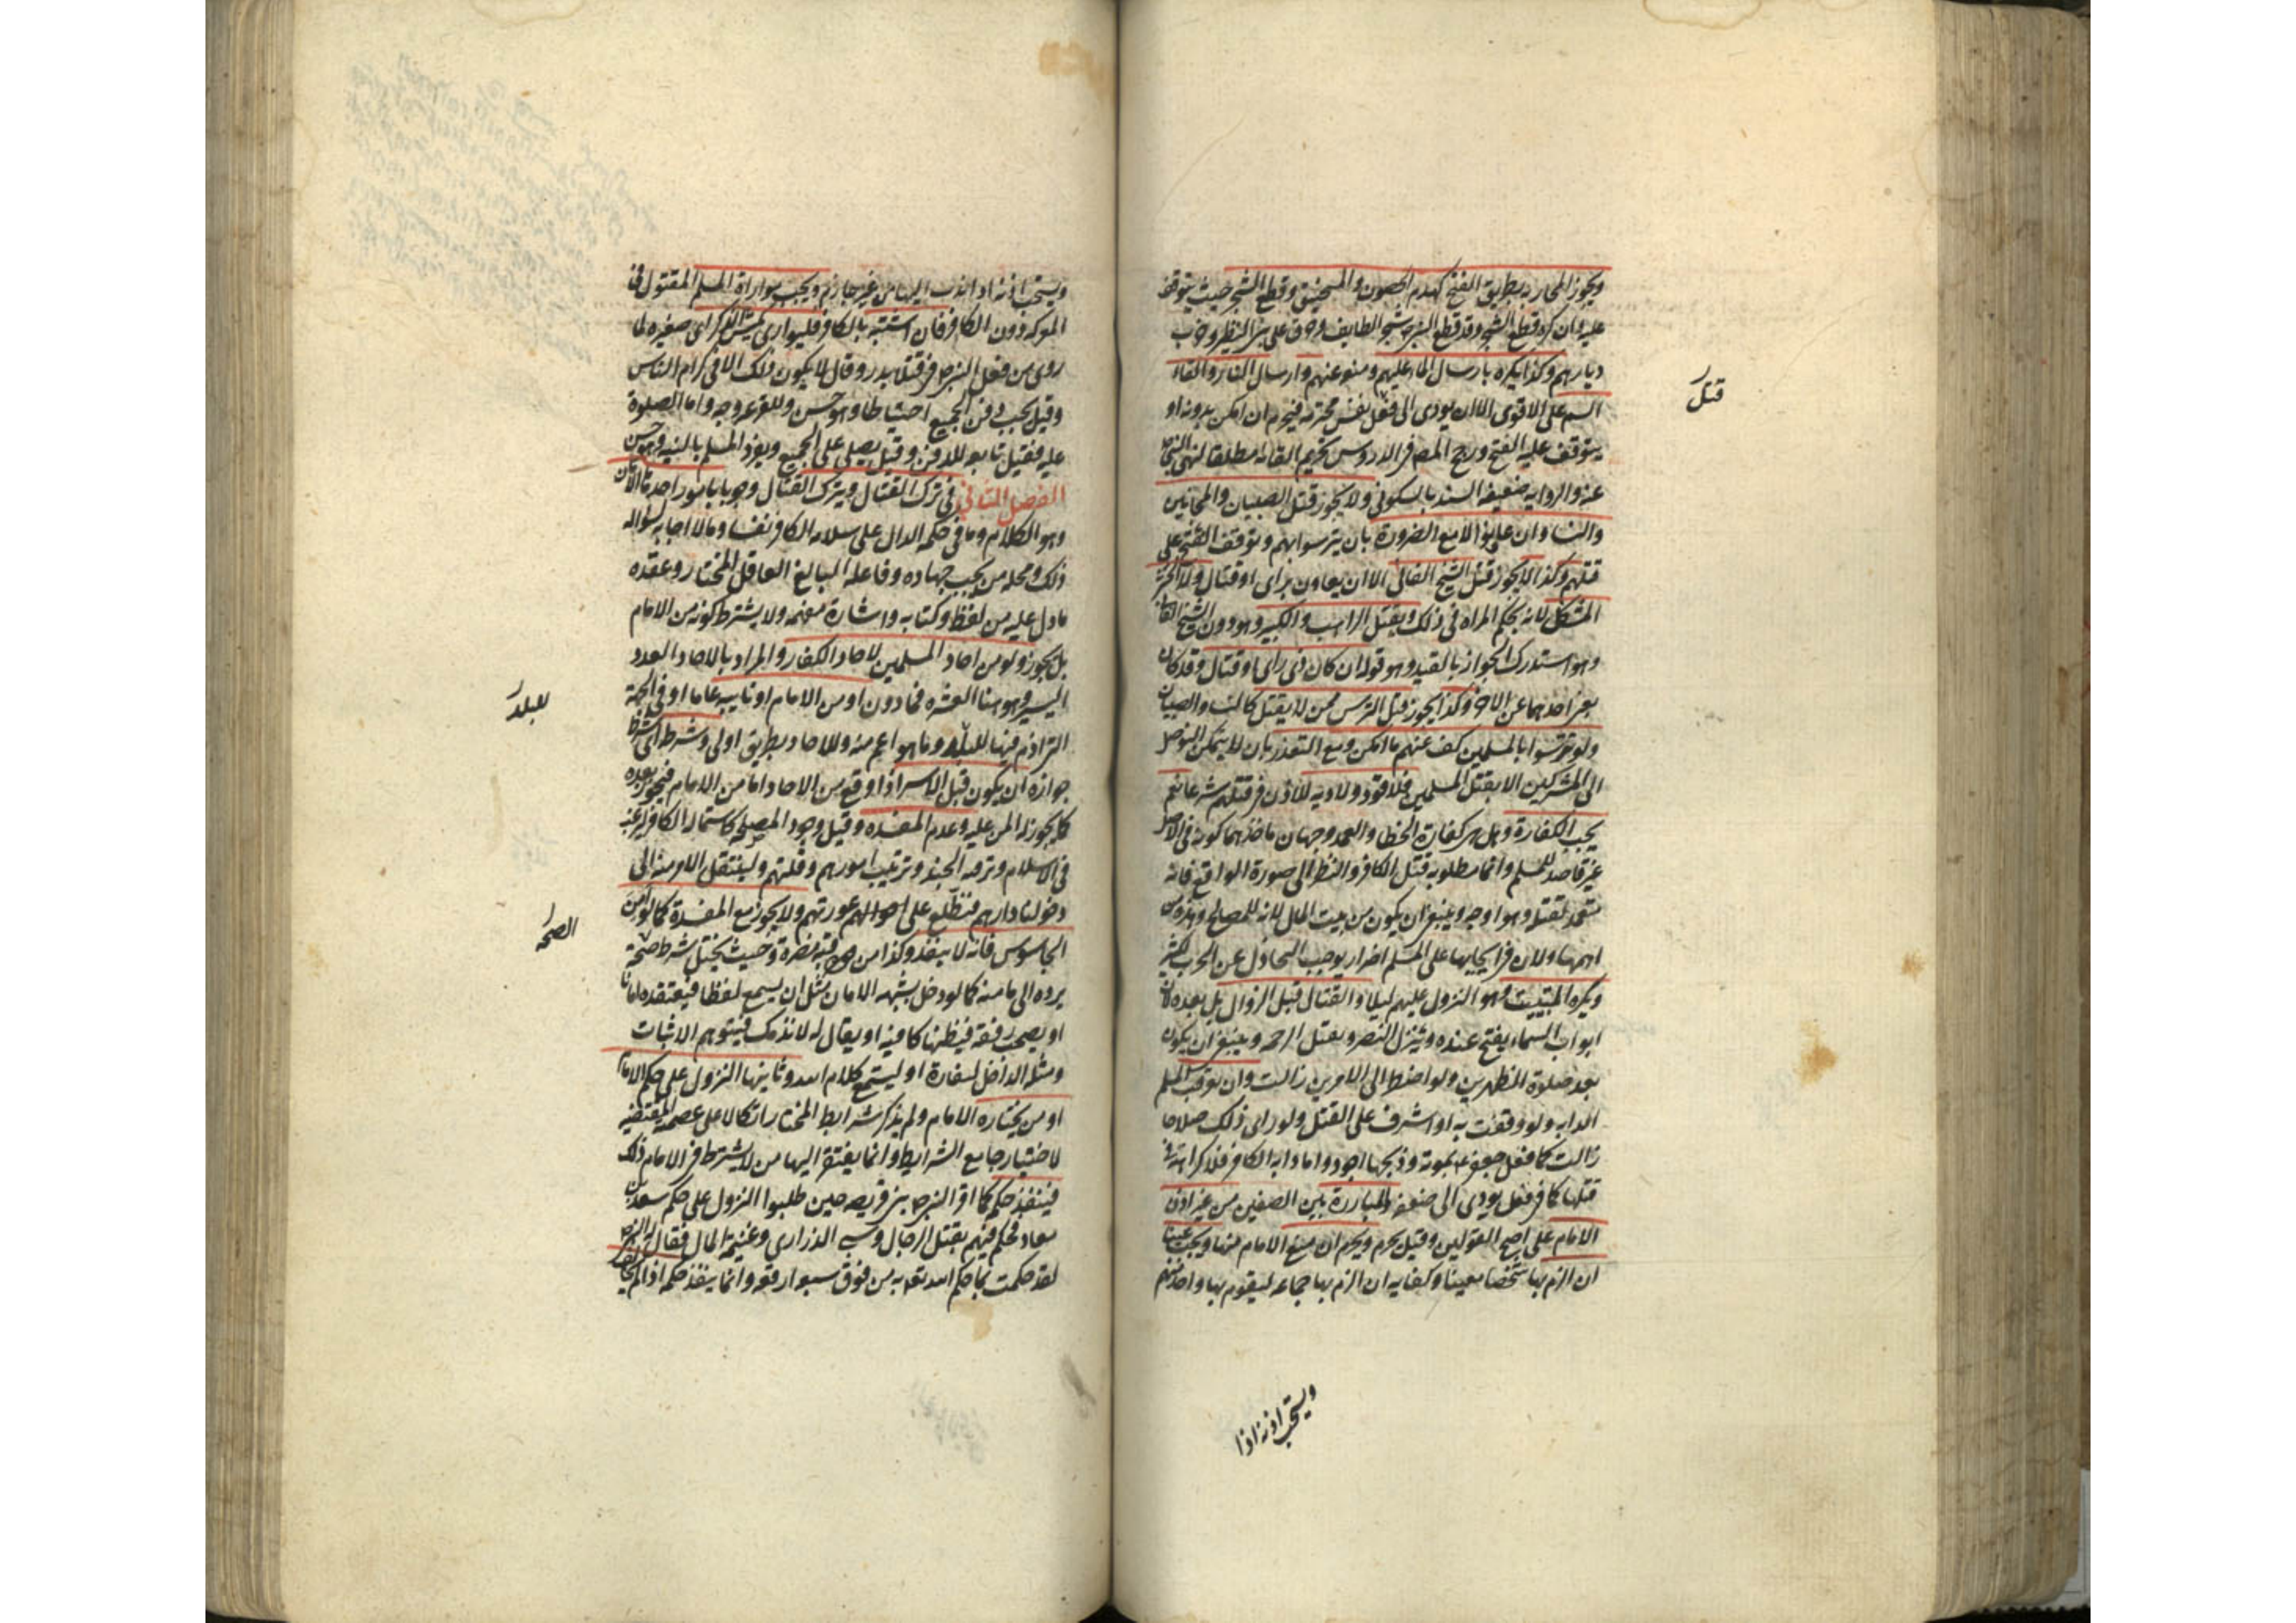 ويجوز المحاربه بطريق الفتح كهدم الحصون والمنجنيق وقطع الشجر حيث يتوقف
عليه وان كره قطع الشجر وقد قطع النبي ص شجر الطايف وحرق على بني النضير وخرب
ديارهم وكذا يكره بارسال الماء عليهم ومنعه عنهم وارسال النار والقاء
السم على الاقوى الا ان يودى الى قتل نفس محترمه فيحرم ان امكن بدونه او
يتوقف عليه الفتح ورجح المص في الدروس تحريم القائه مطلقا لنهى النبي ص
عنه والروايه ضعيفه السند بالسكوني ولا يجوز قتل الصبيان والمجانين
والنساء وان عاونوا الا مع الضرورة بان يترسوا بهم وتوقف الفتح على
قتلهم وكذا لا يجوز قتل الشيخ الفانى الا ان يعاون براى او قتال ولا الخنثى
المشكل لانه بحكم المراه في ذلك ويقتل الراهب والكبير وهو دون الشيخ الفانى
وهو استدرك الجواز بالقيد وهو قوله ان كان ذى راى او قتال وقد كان
يغنى احدهما عن الاخر وكذا يجوز قتل الترس ممن لا يقتل كالنساء والصبيان
ولو تترسوا بالمسلمين كف عنهم ما امكن ومع التعذر بان لا يتمكن التوصل
الى المشركين الا بقتل المسلمين فلا قود ولا ديه للاذن في قتلهم شرعا نعم
يجب الكفارة وهل هي كفارة الخطا والعمد وجهان ماخذهما كونه في الاصل
غير قاصد للمسلم وانما مطلوبه قتل الكافر والنظر الى صورة الواقع فانه
متعمد لقتله وهو اوجه وينبغي ان يكون من بيت المال لانه للمصالح وهذه من
اهمها ولان في ايجابها على المسلم اضرار يوجب التخاذل عن الحرب لكثير
ويكره التبييت وهو النزول عليهم ليلا والقتال قبل الزوال بل بعده لان
ابواب السماء يفتح عنده وينزل النصر ويقبل الرحمه وينبغي ان يكون
بعد صلوة الظهرين ولو اضطر الى الامرين زالت وان يعرقب المسلم
الدابه ولو وقفت به او اشرف على القتل ولو راى ذلك صلاحا
زالت كما فعل جعفر بمؤته وذبحها اجود واما دابه الكافر فلا كراهه في
قتلها كما في فعل يودى الى ضعفه والمبارزة بين الصفين من غير اذن
الامام على اصح القولين وقيل يحرم ويحرم ان منع الامام منها ويجب عينا
ان الزم بها شخصا معينا وكفايه ان الزم بها جماعه ليقوم بها واحد منهم
قتل
ويستحب اذنه اذا
ويستحب اذنه اذا ندب اليها من غير جازم ويجب مواراة المسلم المقتول في
المعركه دون الكافر فان اشتبه بالكافر فليوارى كميش الذكر اى صغيره لما
روى من فعل النبي ص في قتلا بدر وقال لا يكون ذلك الا في كرام الناس
وقيل يجب دفن الجميع احتياطا وهو حسن وللقرعة وجه واما الصلوة
عليه فقيل تابعه للدفن وقيل يصلى على الجميع ويفرد المسلم بالنيه وهو حسن
الفصل الثاني في ترك القتال ويترك القتال وجوبا بامور احدها الامان
وهو الكلام وما في حكمه الدال على سلامه الكافر نفسا ومالا اجابه لسؤاله
ذلك ومحله من يجب جهاده وفاعله البالغ العاقل المختار وعقده
ما دل عليه من لفظ وكتابه واشارة مفهمه ولا يشترط كونه من الامام
بل يجوز ولو من احاد المسلمين لاحاد الكفار والمراد بالاحاد العدد
اليسير وهو هنا العشره فما دون او من الامام او نايبه عاما او في الجهة
التى اذن فيها للبلد وما هو اعم منه وللاحاد بطريق اولى وشرطه اى شرط
جوازه ان يكون قبل الاسر اذا وقع من الاحاد اما من الامام فيجوز بعده
كما يجوز له المن عليه وعدم المفسده وقيل وجود المصلحه كاستماله الكافر ليرغب
في الاسلام وترفه الجند وترتيب امورهم وقلتهم ولينتقل الامر منه الى
دخولنا دارهم فنطلع على احوالهم عورتهم ولا يجوز مع المفسدة كما لو امن
الجاسوس فانه لا ينفذ وكذا من فيه مضرة وحيث يختل شرط صحة
يرده الى مامنه كما لو دخل بشبهه الامان مثل ان يسمع لفظا فيعتقده امانا
او يصحب رفقه فيظنها كافيه او يقال له لا نذمك فيتوهم الاثبات
ومثله الداخل لسفارة او ليستمع كلام الله وثانيها النزول على حكم الامام
او من يختاره الامام ولم يذكر شرايط المختار اتكالا على عصمه المقتضيه
لاختيار جامع الشرايط وانما يفتقر اليها من لا يشترط في الامام ذلك
فينفذ حكمه كما اقر النبي ص بني قريضه حين طلبوا النزول على حكم سعد بن
معاذ فحكم فيهم بقتل الرجال وسبى الذراري وغنيمة المال فقال له النبي ص
لقد حكمت بما حكم الله تعالى به من فوق سبع ارقعه وانما ينفذ حكمه اذا لم
للبلد
الصحه